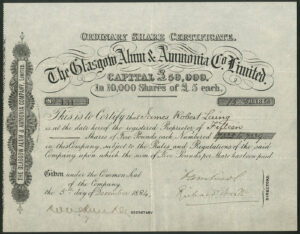 ORDINARY SHARE CERTIFICATE.
The Glasgow Alum & Ammonia Co Limited
CAPITAL £50,000,
In 10,000 Shares of £5 each.
This is to Certify that James Robert Laing
is at the date hereof the registered Proprietor of Fifteen
Shares of Five Pounds each Numbered
in this Company, subject to the Rules and Regulations of the said
Company upon which the sum of Five Pounds per Share has been paid
Given under the Common Seal
of the Company
the 5th day of December 1884.
SECRETARY
DIRECTORS.
THE GLASGOW ALUM & AMMONIA COMPANY, LIMITED.